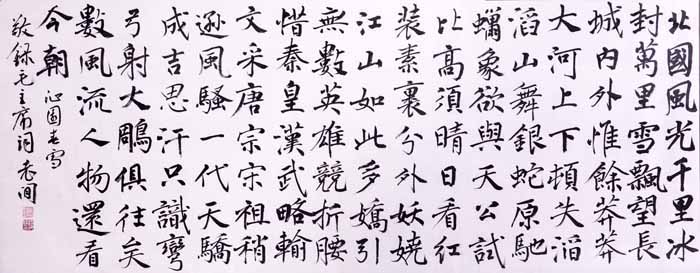 北國風光千里冰
封萬里雪飄望長
城内外惟餘莽莽
大河上下頓失滔
滔山舞銀蛇原馳
蠟象欲與天公試
比高須晴日看紅
裝素裹分外妖嬈
江山如此多嬌引
無數英雄競折腰
惜秦皇漢武略輸
文采唐宗宋祖稍
遜風騷一代天驕
成吉思汗只識彎
弓射大鵰俱往矣
數風流人物還看
今朝 沁園春雪
敬録毛主席詞